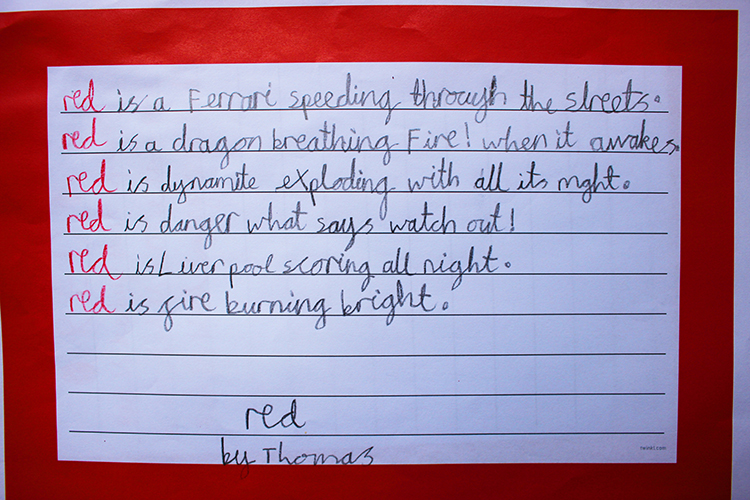 red is a Ferrari speeding through the streets.
red is a dragon breathing Fire! when it awakes.
red is dynamite exploding with all its might.
red is danger what says watch out!
red is Liverpool scoring all night.
red is fire burning bright.
red
by Thomas
twinkl.com